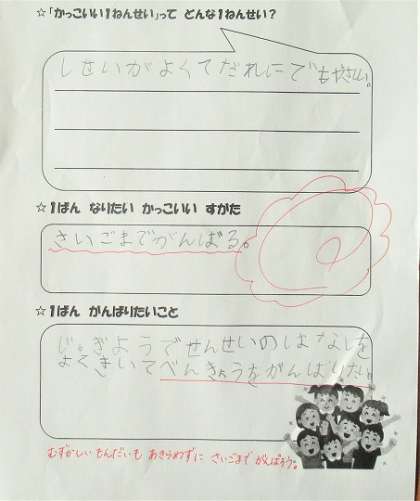 ☆「かっこいい1ねんせい」って どんな1ねんせい？
しせいがよくてだれにでもやさしい。
☆1ばん なりたい かっこいい すがた
さいごまでがんばる。
☆1ばん がんばりたいこと
じゅぎょうでせんせいのはなしを
よくきいてべんきょうをがんばりたい。
むずかしいもんだいも あきらめずに さいごまで がんばろう。